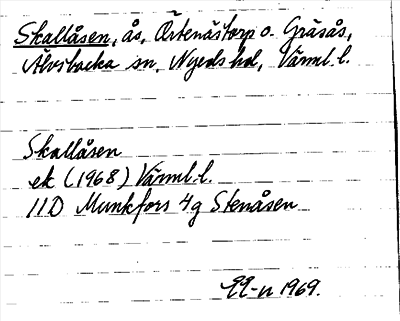 Skallåsen, ås, Örtenästorp o. Gräsås,
Älvsbacka sn, Nyeds hd, Värml. l.
Skallåsen
ek (1968) Värml. l.
11D Munkfors 4g Stenåsen
1969.